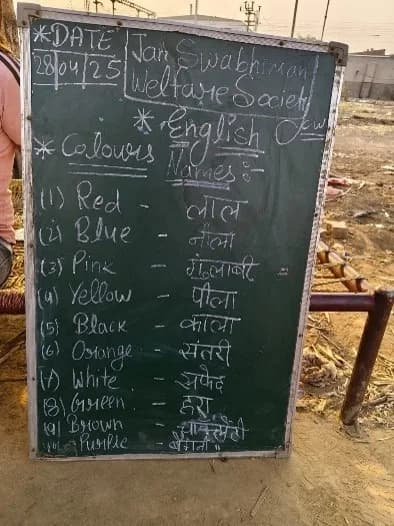 *DATE
28/04/25
Jan Swabhiman
Welfare Society
* English
* Colours Names:-
(1) Red - लाल
(2) Blue - नीला
(3) Pink - गुलाबी
(4) Yellow - पीला
(5) Black - काला
(6) Orange - संतरी
(7) White - सफेद
(8) Green - हरा
(9) Brown -
(10) Purple - बैंगनी